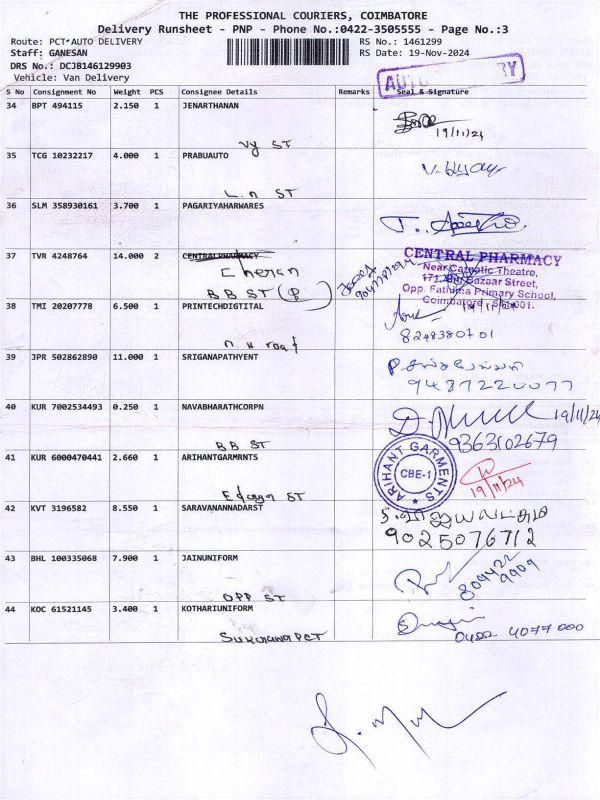 THE PROFESSIONAL COURIERS, COIMBATORE
Delivery Runsheet - PNP - Phone No.:0422-3505555 - Page No.:3
Route: PCT-AUTO DELIVERY RS No.: 1461299
Staff: GANESAN RS Date: 19-Nov-2024
DRS No.: DCJB146129903
Vehicle: Van Delivery
S No Consignment No Weight PCS Consignee Details Remarks Seal & Signature
34 BPT 494115 2.150 1 JENARTHANAN
19/11/24
Vy ST
35 TCG 10232217 4.000 1 PRABUAUTO
L.n ST
36 SLM 358930161 3.700 1 PAGARIYAHARWARES
37 TVR 4248764 14.000 2 CENTRALPHARMACY
CENTRAL PHARMACY
Near Carnotic Theatre,
171, Big Bazaar Street,
Opp. Fathima Primary School,
Coimbatore - 641 001.
Cheran
BB ST (P)
38 TMI 20207778 6.500 1 PRINTECHDIGTITAL
8248380701
39 JPR 502862890 11.000 1 SRIGANAPATHYENT
9487220077
40 KUR 7002534493 0.250 1 NAVABHARATHCORPN
19/11/24
9363102679
BB ST
41 KUR 6000470441 2.660 1 ARIHANTGARMRNTS
ARIHANT GARMENTS
CBE-1
19/11/24
Edayn ST
42 KVT 3196582 8.550 1 SARAVANANNADARST
9025076712
43 BHL 100335068 7.900 1 JAINUNIFORM
809422
9909
OPP ST
44 KOC 61521145 3.400 1 KOTHARIUNIFORM
0422 4077 000